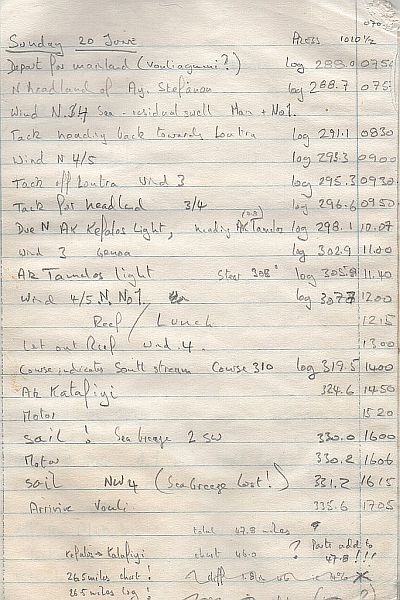 Sunday 20 June Press 1010 1/2 070
Depart for mainland (Vouliagmeni?) log 288.0 075
N headland of Ay. Stefanou log 288.7 075
Wind N 3/4 Sea - residual swell Main + No1.
Tack heading back towards Loutra log 291.1 0830
Wind N 4/5 log 293.3 0900
Tack off Loutra Wind 3 log 295.3 0930
Tack for headland 3/4 log 296.6 0950
Due N AK Kefalos Light, heading AK Tamelos log 298.1 10.07
Wind 3 Genoa log 302.9 11.00
AK Tamelos light Steer 308° log 305.9 11.40
Wind 4/5 N. No1. log 307.7 1200
Reef / Lunch 1215
Let out Reef Wind 4. 1300
Course indicates South stream Course 310 log 319.5 1400
AK Katafigi 324.6 1450
Motor 1520
Sail! Sea breeze 2 SW 330.0 1600
Motor 330.2 1606
Sail NW 4 (Sea breeze lost!) 331.2 1615
Arrive Vouli 335.6 1705
total 47.8 miles ?
Kefalos → Katafigi chart 46.0 ? Parts add to 47.8!!!
26.5 miles chart! ? diff 1.8 in 46 ie 4%
26.5 miles log!